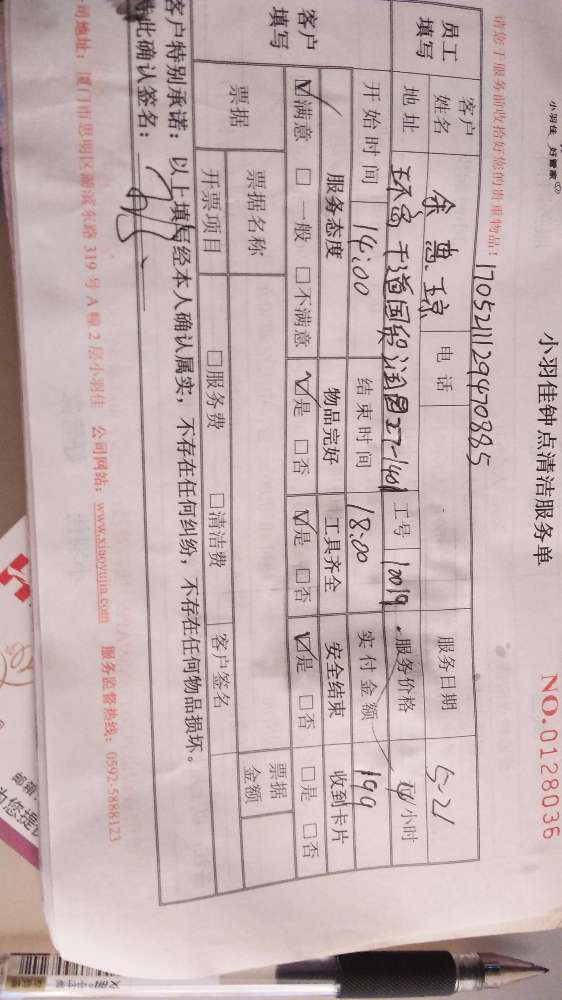 小羽佳 好管家
小羽佳钟点清洁服务单
NO.0128036
请您于服务前收拾好您的贵重物品!
1705211129470885
员工填写
客户姓名 余惠琼 电话 服务日期 5-21
地址 27-1401 工号 10019 服务价格 /小时
开始时间 14:00 结束时间 18:00 实付金额 199
客户填写
服务态度 物品完好 工具齐全 安全结束 收到卡片
☑满意 □一般 □不满意 ☑是 □否 ☑是 □否 ☑是 □否 □是 □否
票据 票据名称 票据金额
开票项目 □服务费 □清洁费 客户签名
客户特别承诺:以上填写经本人确认属实,不存在任何纠纷,不存在任何物品损坏。
特此确认签名:
公司地址:厦门市思明区湖滨东路 319 号 A 幢 2 层小羽佳 公司网站:www.xiaoyujia.com 服务监督热线:0592-5888123
邮箱
为您提